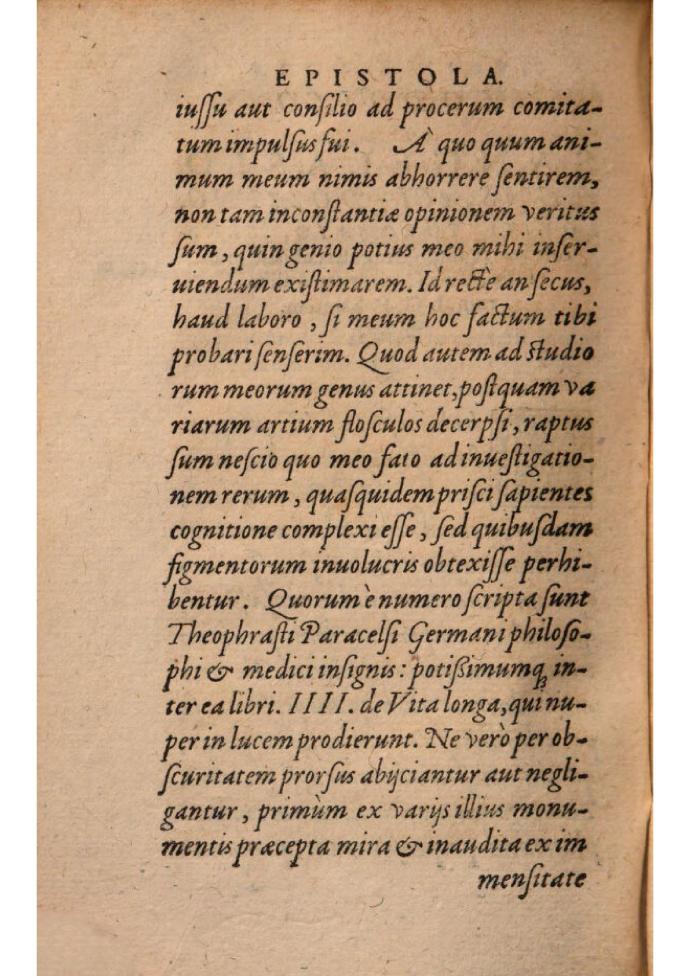 EPISTOLA.
iuſſu aut conſilio ad procerum comita-
tum impulſus fui. À quo quum ani-
mum meum nimis abhorrere ſentirem,
non tam inconſtantiæ opinionem veritus
ſum, quin genio potius meo mihi inſer-
uiendum exiſtimarem. Id rectè an ſecus,
haud laboro, ſi meum hoc factum tibi
probari ſenſerim. Quod autem ad studio
rum meorum genus attinet, poſtquam va
riarum artium floſculos decerpſi, raptus
ſum neſcio quo meo fato ad inueſtigatio-
nem rerum, quaſquidem priſci ſapientes
cognitione complexi eſſe, ſed quibuſdam
figmentorum inuolucris obtexiſſe perhi-
bentur. Quorum è numero ſcripta ſunt
Theophraſti Paracelſi Germani philoſo-
phi & medici inſignis: potißimumq́ꝫ in-
ter ea libri. IIII. de Vita longa, qui nu-
per in lucem prodierunt. Ne verò per ob-
ſcuritatem prorſus abijciantur aut negli-
gantur, primùm ex varijs illius monu-
mentis præcepta mira & inaudita ex im
menſitate